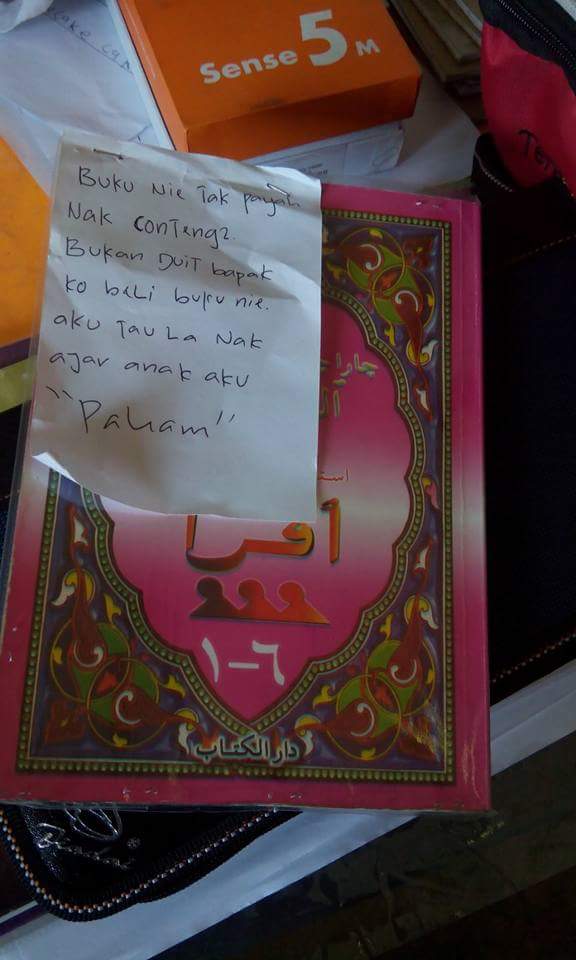 cake can
Sense 5 M
Buku nie tak payah
Nak conteng2.
Bukan Duit bapak
ko beli buku nie.
aku Tau La Nak
ajar anak aku
"Paham"
چارا
اقرأ
١-٦
دار الكتاب